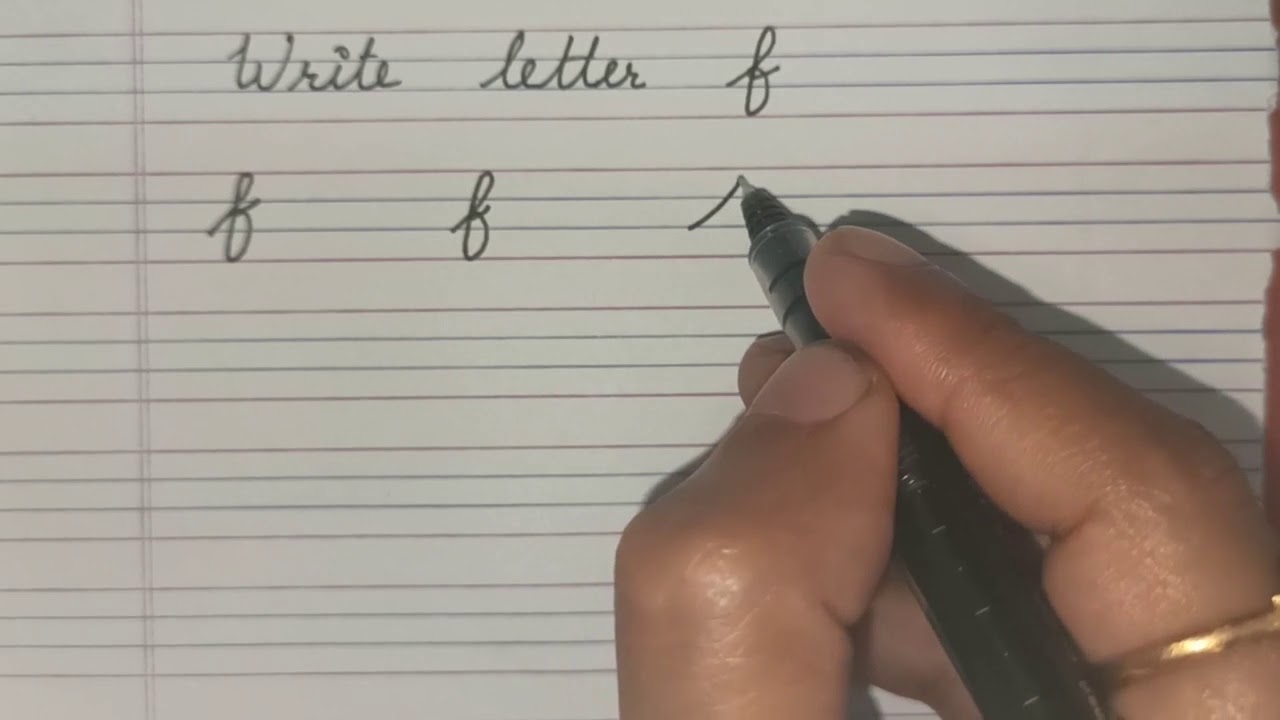 Write letter f
f f